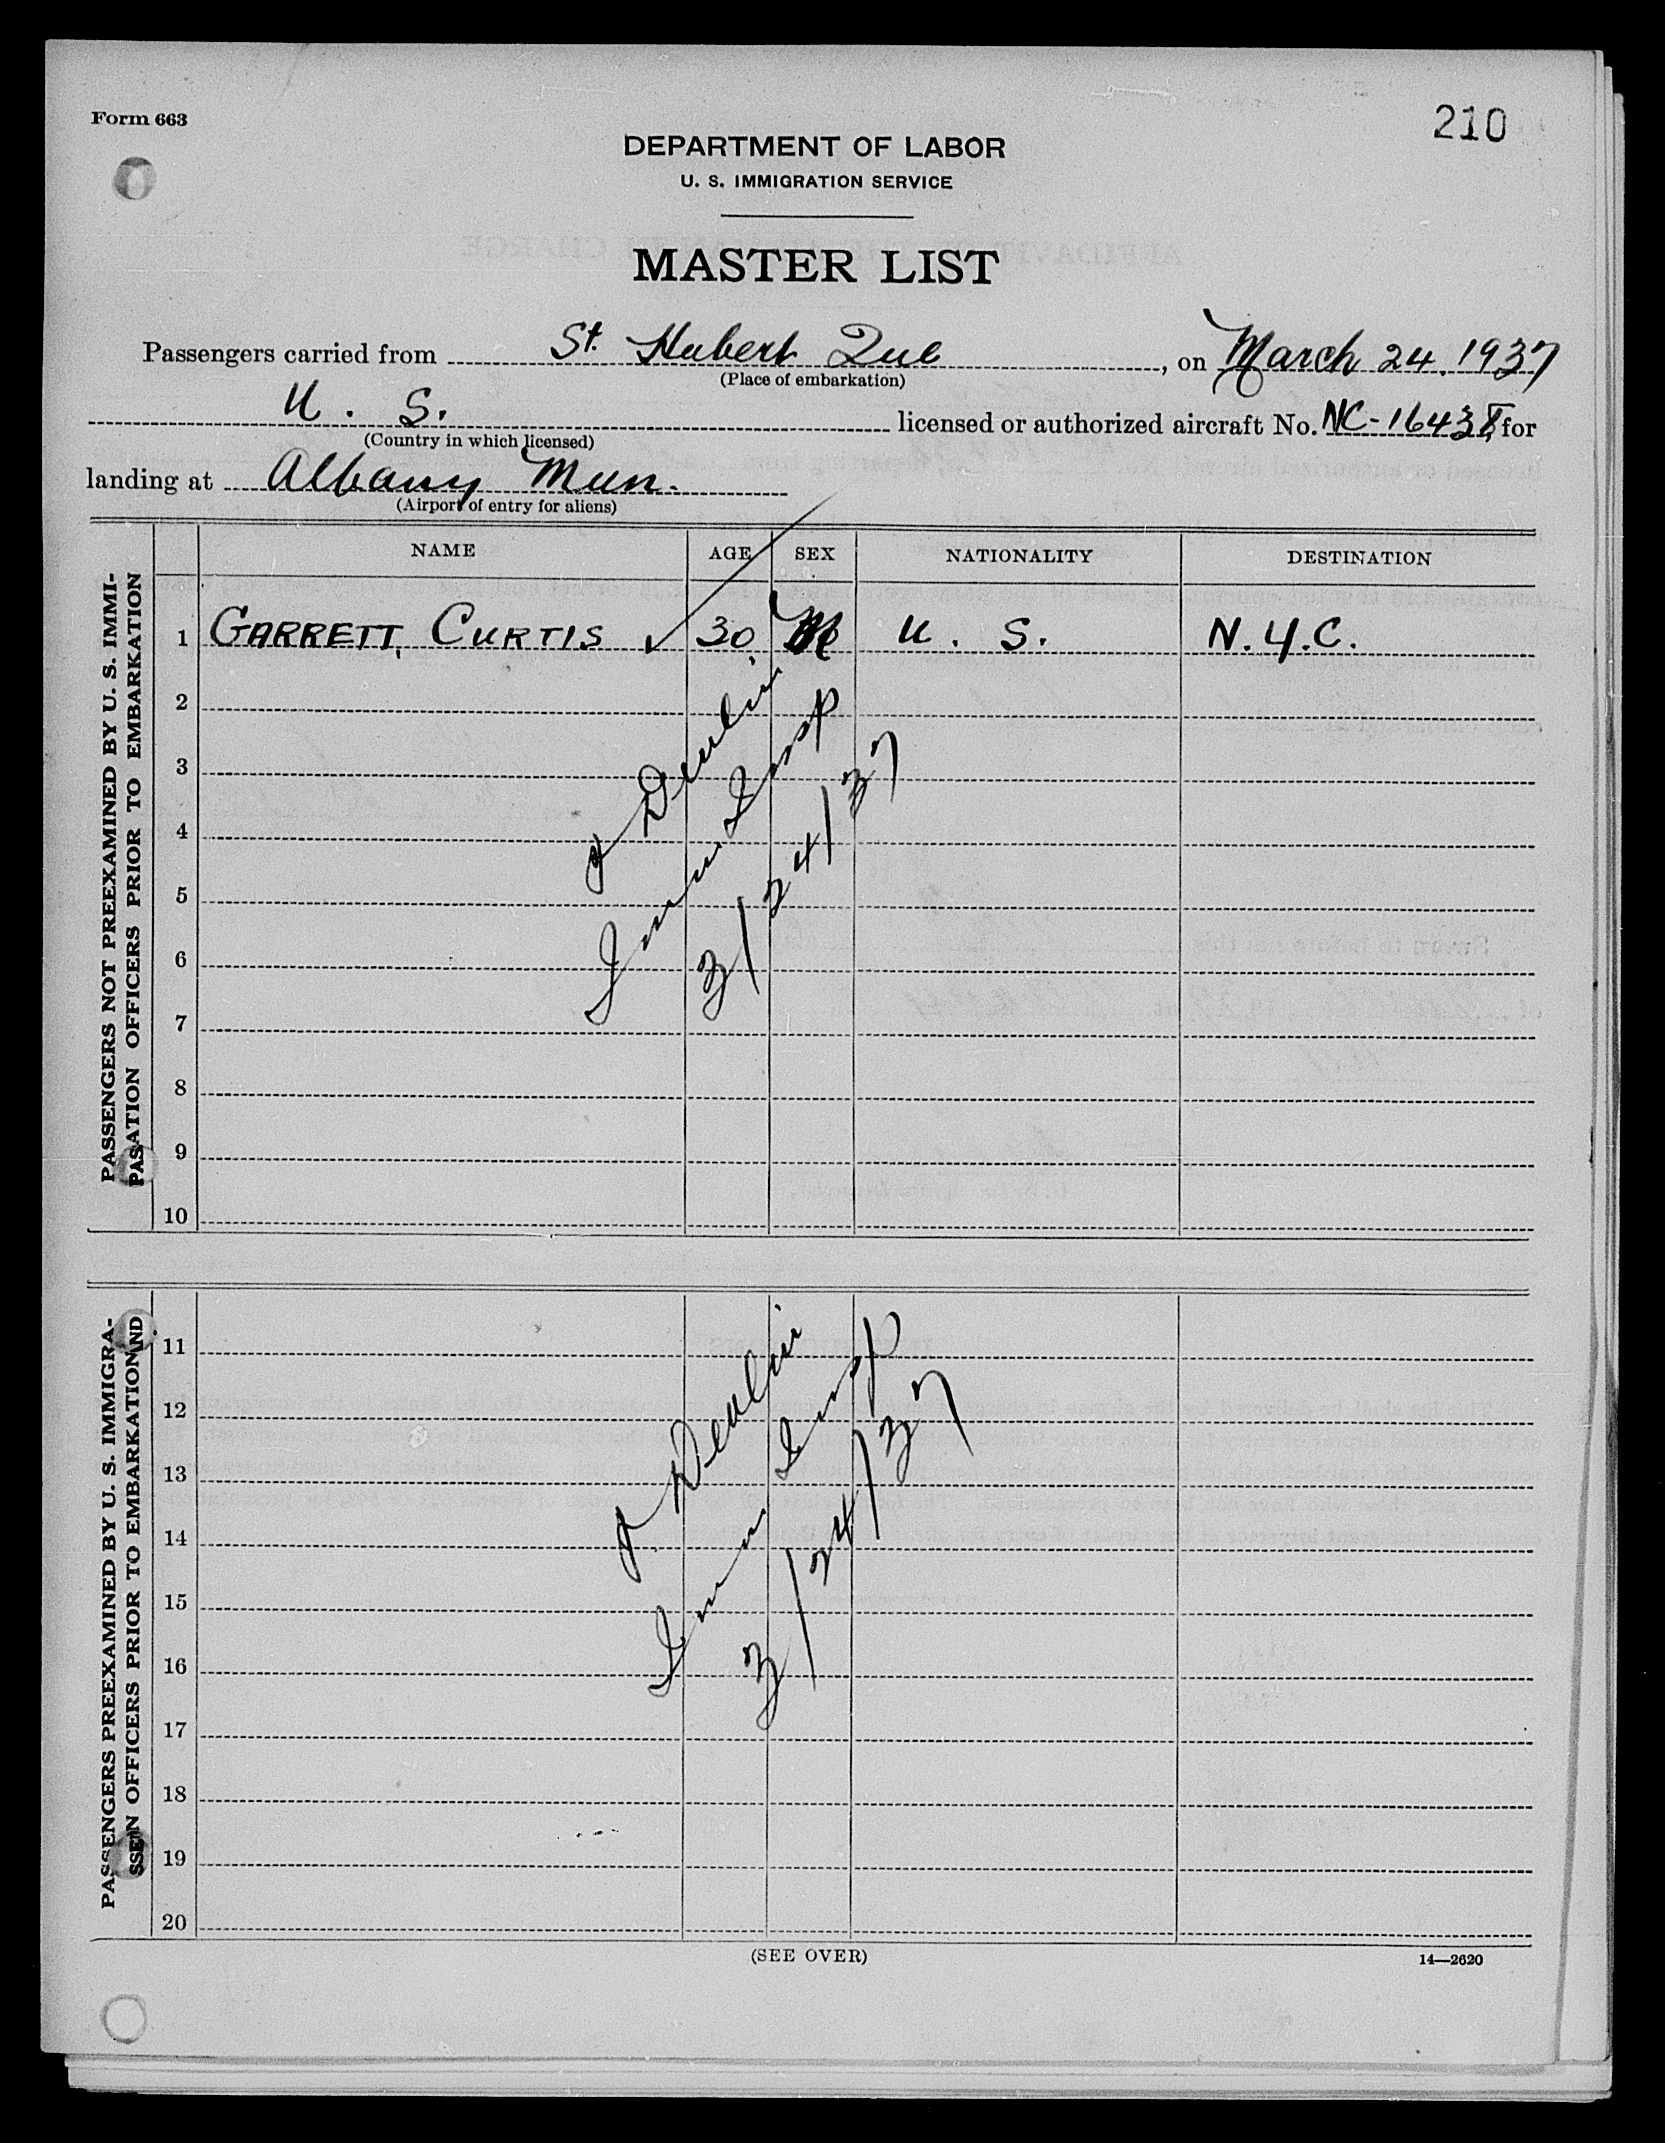 Form 663
210
DEPARTMENT OF LABOR
U. S. IMMIGRATION SERVICE
MASTER LIST
Passengers carried from St. Hubert Que, on March 24. 1937
(Place of embarkation)
U. S. licensed or authorized aircraft No. NC-16438, for
(Country in which licensed)
landing at Albany Mun.
(Airport of entry for aliens)
NAME AGE SEX NATIONALITY DESTINATION
PASSENGERS NOT PREEXAMINED BY U. S. IMMI-
PASATION OFFICERS PRIOR TO EMBARKATION
1 GARRETT, CURTIS ✓ 30 M U. S. N.Y.C.
2
3
4
5
6
7
8
9
10
J Devlin
Imm. Insp
3/24/37
PASSENGERS PREEXAMINED BY U. S. IMMIGRA-
OFFICERS PRIOR TO EMBARKATION
11
12
13
14
15
16
17
18
19
20
J Devlin
Imm Insp
3/24/37
(SEE OVER)
14—2620